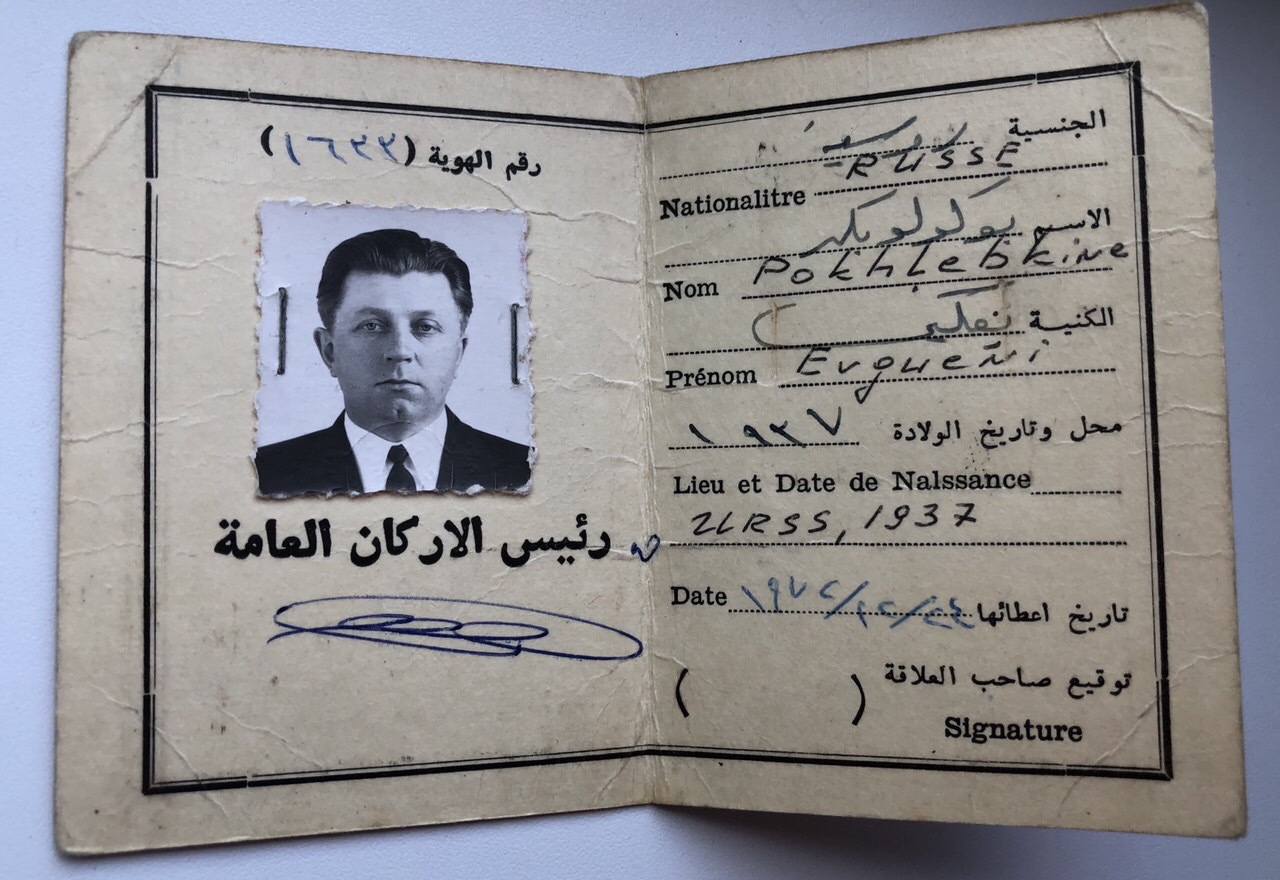 رقم الهوية (١٦٣٣)
رئيس الاركان العامة
الجنسية
RUSSE
Nationalitre
الاسم
Pokhlebkine
Nom
الكنية
Evgueni
Prénom
محل وتاريخ الولادة ١٩٣٧
Lieu et Date de Nalssance
URSS, 1937
Date تاريخ اعطائها
توقيع صاحب العلاقة
( )
Signature